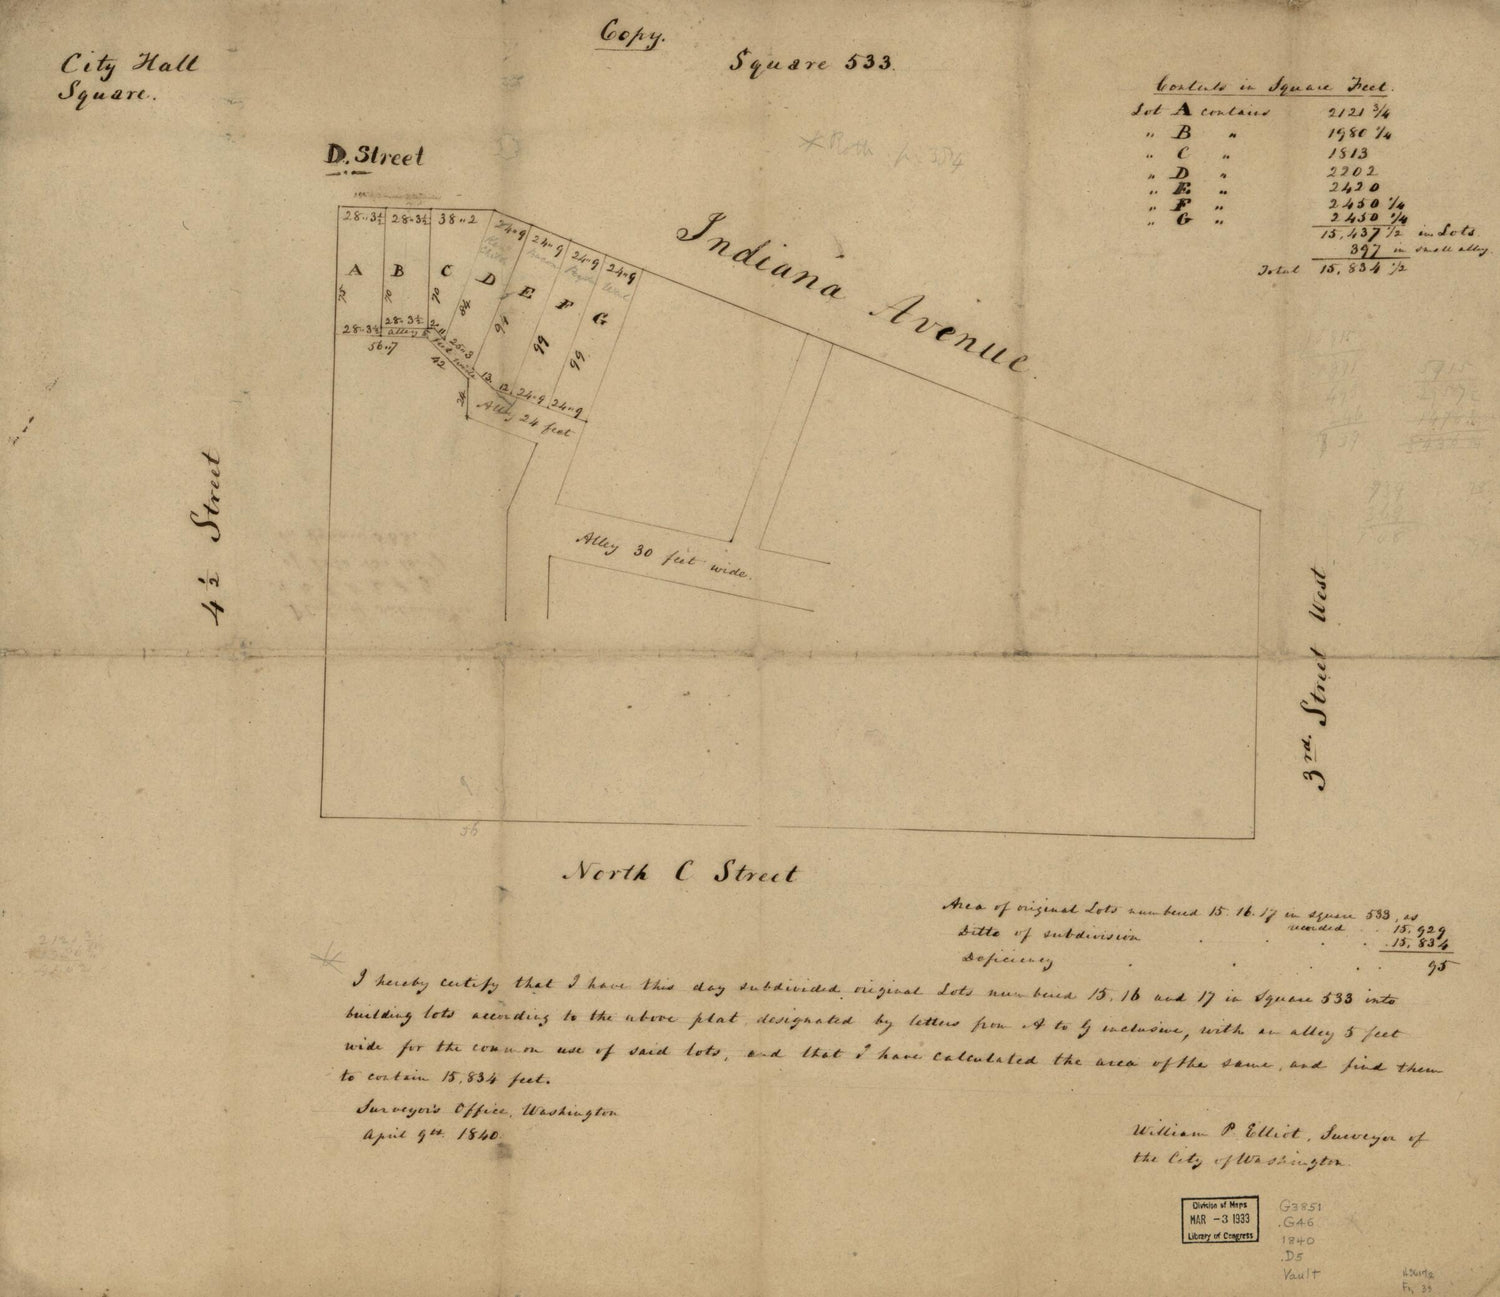 Copy.
City Hall
Square.
Square 533.
Contents in Square Feet.
Lot A contains 2121 3/4
" B " 1980 1/4
" C " 1813
" D " 2202
" E " 2420
" F " 2450 1/4
" G " 2450 1/4
15,437 1/2 in Lots
397 in small alley.
Total 15,834 1/2
D. Street
28..3½ 28..3½ 38..2 24..9 24..9 24..9 24..9
Indiana Avenue.
A B C D E F G
70 70 70 84 91 99 99
28..3½ 28..3½ 25..3
alley 5 feet wide
56..7 42
12 12 24..9 24..9
24
Alley 24 feet
4½ Street
Alley 30 feet wide.
3rd. Street West
56
North C Street
Area of original Lots numbered 15. 16. 17 in square 533, as
recorded 15,929
Ditto of subdivision 15,834
Deficiency 95
I hereby certify that I have this day subdivided original Lots numbered 15, 16 and 17 in Square 533 into
building lots according to the above plat, designated by letters from A to G inclusive, with an alley 5 feet
wide for the common use of said lots, and that I have calculated the area of the same, and find them
to contain 15,834 feet.
Surveyor's Office, Washington
April 9th. 1840.
William P. Elliot, Surveyor of
the City of Washington.
Division of Maps
MAR -3 1933
Library of Congress
G3851
.G46
1840
.D5
Vault